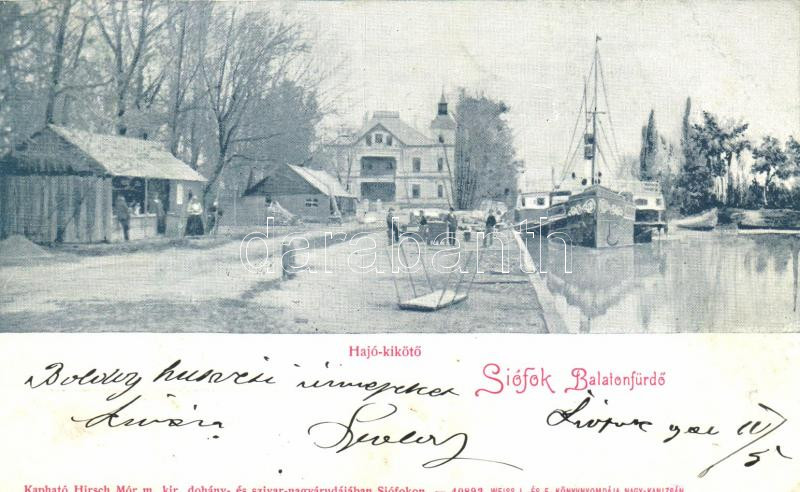 darabanth
Hajó-kikötő
Siófok Balatonfürdő
Boldog husveti ünnepeket
kiván
Siófok 901 IV/5
Kapható Hirsch Mór m. kir. dohány- és szivar-nagyárudájában Siófokon. — 40892 WEISS L. ÉS F. KÖNYVNYOMDÁJA NAGY-KANIZSÁN